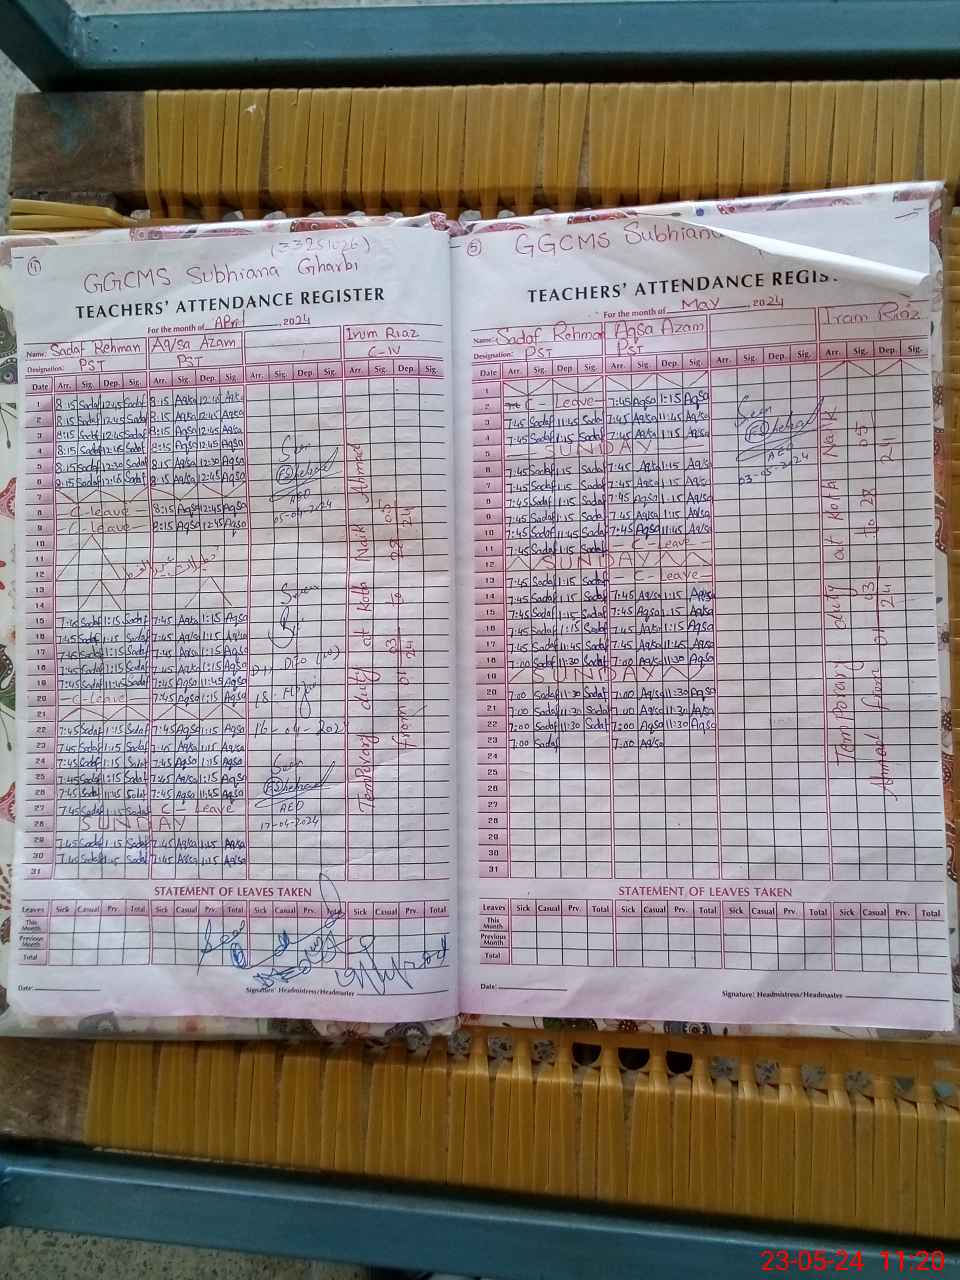 (4)
(33251026)
GGCMS Subhiana Gharbi
TEACHERS' ATTENDANCE REGISTER
For the month of April 2024
Name: Sadaf Rehman Aqsa Azam Iram Riaz
Designation: PST PST C-IV
Date Arr. Sig. Dep. Sig. Arr. Sig. Dep. Sig. Arr. Sig. Dep. Sig. Arr. Sig. Dep. Sig.
1 8:15 Sadaf 12:45 Sadaf 8:15 Aqsa Aqsa
2 8:15 Sadaf 12:45 Sadaf 8:15 Aqsa 12:45 Aqsa
3 8:15 Sadaf 12:45 Sadaf 8:15 Aqsa 12:45 Aqsa
4 8:15 Sadaf 12:45 Sadaf 8:15 Aqsa 12:45 Aqsa
5 8:15 Sadaf 12:30 Sadaf 8:15 Aqsa 12:30 Aqsa
6 8:15 Sadaf Sadaf 8:15 Aqsa 12:45 Aqsa
7
8 - C-leave - 8:15 Aqsa 12:45 Aqsa
9 - C-leave - 8:15 Aqsa 12:45 Aqsa
10
11
12
13
14
15 7:45 Sadaf 1:15 Sadaf 7:45 Aqsa 1:15 Aqsa
16 7:45 Sadaf 1:15 Sadaf 7:45 Aqsa 1:15 Aqsa
17 7:45 Sadaf 1:15 Sadaf 7:45 Aqsa 1:15 Aqsa
18 7:45 Sadaf 1:15 Sadaf 7:45 Aqsa 1:15 Aqsa
19 7:45 Sadaf 11:45 Sadaf 7:45 Aqsa 11:45 Aqsa
20 - C-leave 7:45 Aqsa 1:15 Aqsa
21
22 7:45 Sadaf 1:15 Sadaf 7:45 Aqsa 1:15 Aqsa
23 7:45 Sadaf 1:15 Sadaf 7:45 Aqsa 1:15 Aqsa
24 7:45 Sadaf 1:15 Sadaf 7:45 Aqsa 1:15 Aqsa
25 7:45 Sadaf 1:15 Sadaf 7:45 Aqsa 1:15 Aqsa
26 7:45 Sadaf 11:45 Sadaf 7:45 Aqsa 11:45 Aqsa
27 7:45 Sadaf 1:15 Sadaf C - Leave
28 SUNDAY
29 7:45 Sadaf 1:15 Sadaf 7:45 Aqsa 1:15 Aqsa
30 7:45 Sadaf 1:15 Sadaf 7:45 Aqsa 1:15 Aqsa
31
Seen
AEO
05-04-2024
Seen
16-04-202
Seen
AEO
17-04-2024
Temporary duty at Kotla Naik Ahmad
from 01-03-24 to 28-05-24
STATEMENT OF LEAVES TAKEN
Leaves Sick Casual Prv. Total Sick Casual Prv. Total Sick Casual Prv. Total Sick Casual Prv. Total
This Month
Previous Month
Total
Date:
Signature: Headmistress/Headmaster
(5)
GGCMS Subhiana
TEACHERS' ATTENDANCE REGIS
For the month of May 2024
Name: Sadaf Rehman Aqsa Azam Iram Riaz
Designation: PST PST
Date Arr. Sig. Dep. Sig. Arr. Sig. Dep. Sig. Arr. Sig. Dep. Sig. Arr. Sig. Dep. Sig.
1
2 C - Leave - 7:45 Aqsa 1:15 Aqsa
3 7:45 Sadaf 11:45 Sadaf 7:45 Aqsa 11:45 Aqsa
4 7:45 Sadaf 1:15 Sadaf 7:45 Aqsa 1:15 Aqsa
5 SUNDAY
6 7:45 Sadaf 1:15 Sadaf 7:45 Aqsa 1:15 Aqsa
7 7:45 Sadaf 1:15 Sadaf 7:45 Aqsa 1:15 Aqsa
8 7:45 Sadaf 1:15 Sadaf 7:45 Aqsa 1:15 Aqsa
9 7:45 Sadaf 1:15 Sadaf 7:45 Aqsa 1:15 Aqsa
10 7:45 Sadaf 11:45 Sadaf 7:45 Aqsa 11:45 Aqsa
11 7:45 Sadaf 1:15 Sadaf - C - Leave -
12 SUNDAY
13 7:45 Sadaf 1:15 Sadaf - C - Leave -
14 7:45 Sadaf 1:15 Sadaf 7:45 Aqsa 1:15 Aqsa
15 7:45 Sadaf 1:15 Sadaf 7:45 Aqsa 1:15 Aqsa
16 7:45 Sadaf 1:15 Sadaf 7:45 Aqsa 1:15 Aqsa
17 7:45 Sadaf 11:45 Sadaf 7:45 Aqsa 11:45 Aqsa
18 7:00 Sadaf 11:30 Sadaf 7:00 Aqsa 11:30 Aqsa
19 SUNDAY
20 7:00 Sadaf 11:30 Sadaf 7:00 Aqsa 11:30 Aqsa
21 7:00 Sadaf 11:30 Sadaf 7:00 Aqsa 11:30 Aqsa
22 7:00 Sadaf 11:30 Sadaf 7:00 Aqsa 11:30 Aqsa
23 7:00 Sadaf 7:00 Aqsa
24
25
26
27
28
29
30
31
Seen
AEO
03-05-2024
Temporary duty at Kotla Naik
Ahmad from 01-03-24 to 28-05-24
STATEMENT OF LEAVES TAKEN
Leaves Sick Casual Prv. Total Sick Casual Prv. Total Sick Casual Prv. Total Sick Casual Prv. Total
This Month
Previous Month
Total
Date:
Signature: Headmistress/Headmaster
23-05-24 11:20